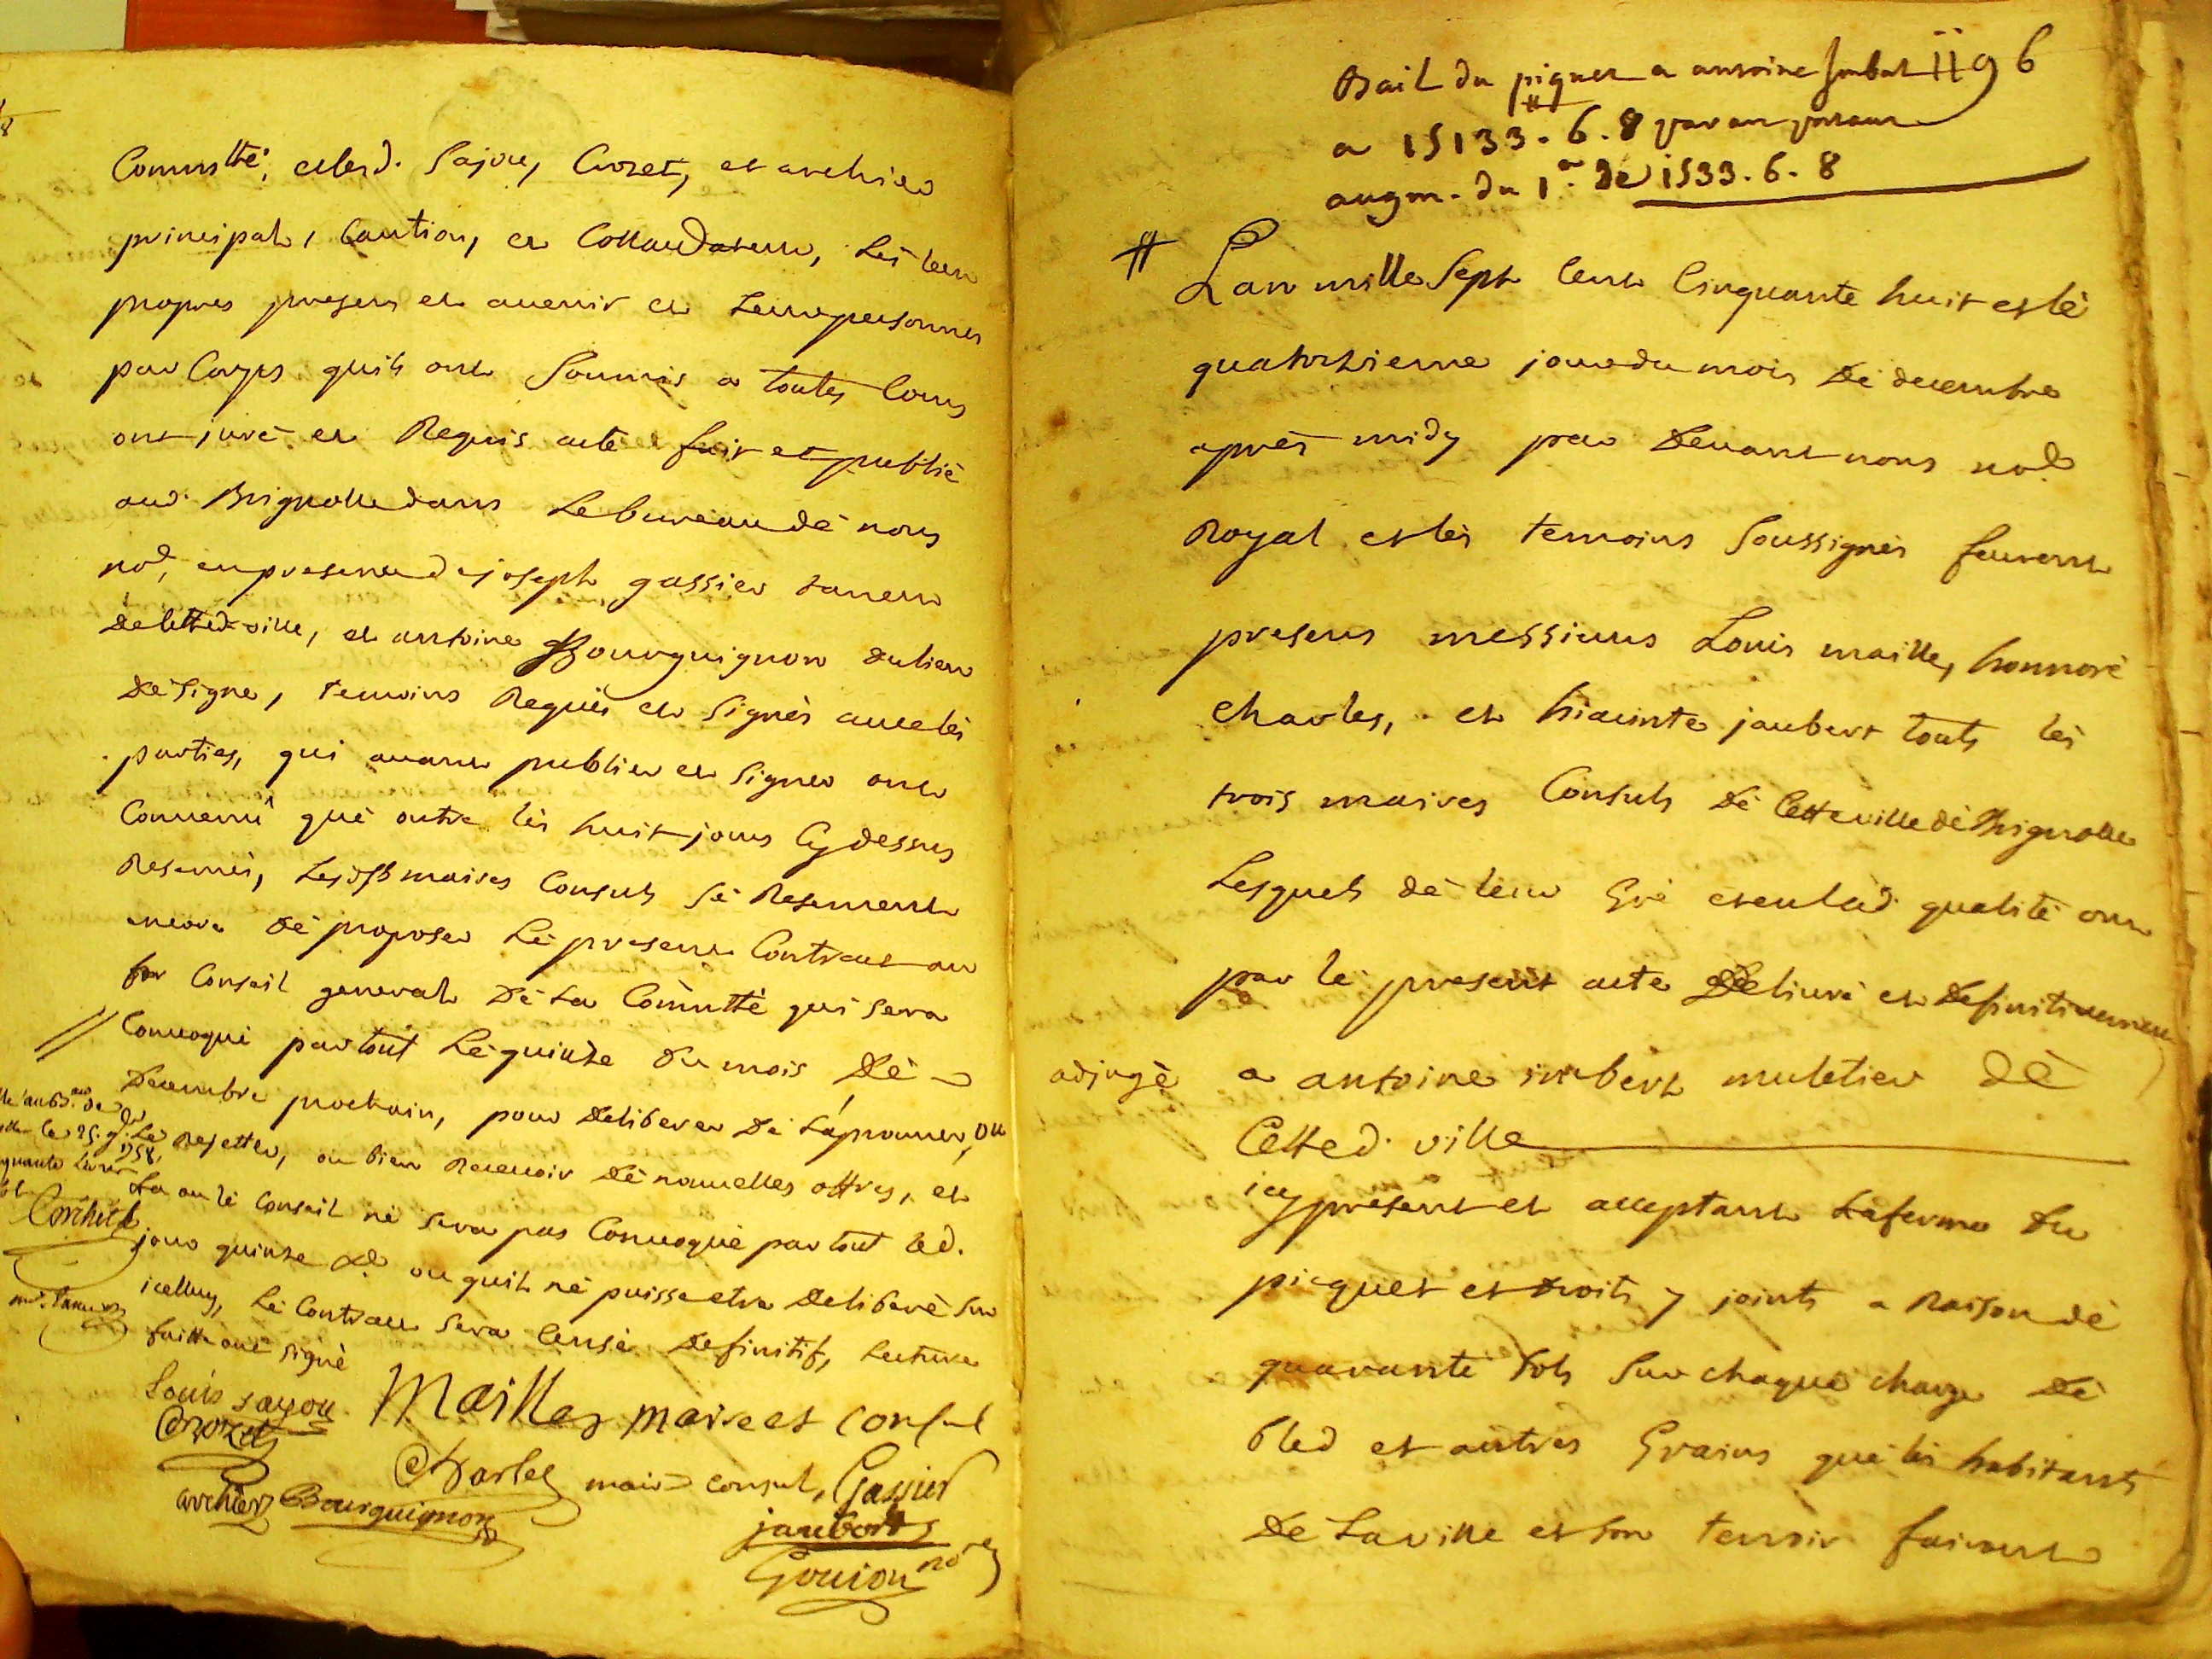 Commtté; et lesd. Sajou, Crozet, et archier
principal, Caution, et Collaudateur, les leur
propres presens et avenir et leurs personnes
par Corps quils ont Soumis a toutes Cours
ont juré et Requis acte fait et publié
aud. Brignolle dans le bureau de nous
nore, en presence de joseph gassier taneur
de cetted. ville, et antoine Bourguignon du lieu
de signe, temoins Requis et Signés avec les
parties, qui avant publier et Signer ont
Convenu que outre les huit jours Cy dessus
Reservés, Lesd. maires Consuls se Reservent
encore de proposer le present Contract au
Conseil general de la Commtté qui sera
Convoqué partout le quinze du mois de
Decembre prochain, pour deliberer de laprouver, ou
Rejetter, ou bien Recevoir de nouvelles offres, et
la ou le Conseil ne sera pas Convoqué partout led.
jour quinze Xbre ou quil ne puisse etre deliberé sur
icelluy, le Contract sera Censé definitif, lecture
faitte ont signé
Louis sajou Mailles maire et consul
Crozet
Charles maire consul, Gassier
archier Bourguignon
jaubert
Goujon nore
Bail du piquet a antoine Imbert 1196
a 15133#. 6. 8 par an portant
augm. du 1er de 1533. 6. 8
# Lan mille Sept Cent Cinquante huit et le
quatorzieme jour du mois de decembre
après midy par devant nous nore
Royal et les temoins Soussignés feurent
presens messieurs Louis maille, honnoré
Charles, et hiacinte jaubert touts les
trois maires Consuls de Cette ville de Brignolle
Lesquels de leur Gré et en lad. qualité ont
par le present acte Delivré et Definitivement
adjugé a antoine imbert muletier de
Cetted. ville
icy present et acceptant la ferme du
picquet et droits y joints a Raison de
quarante sols Sur chaque charge de
bled et autres Grains que les habitants
de La ville et son terroir fairont